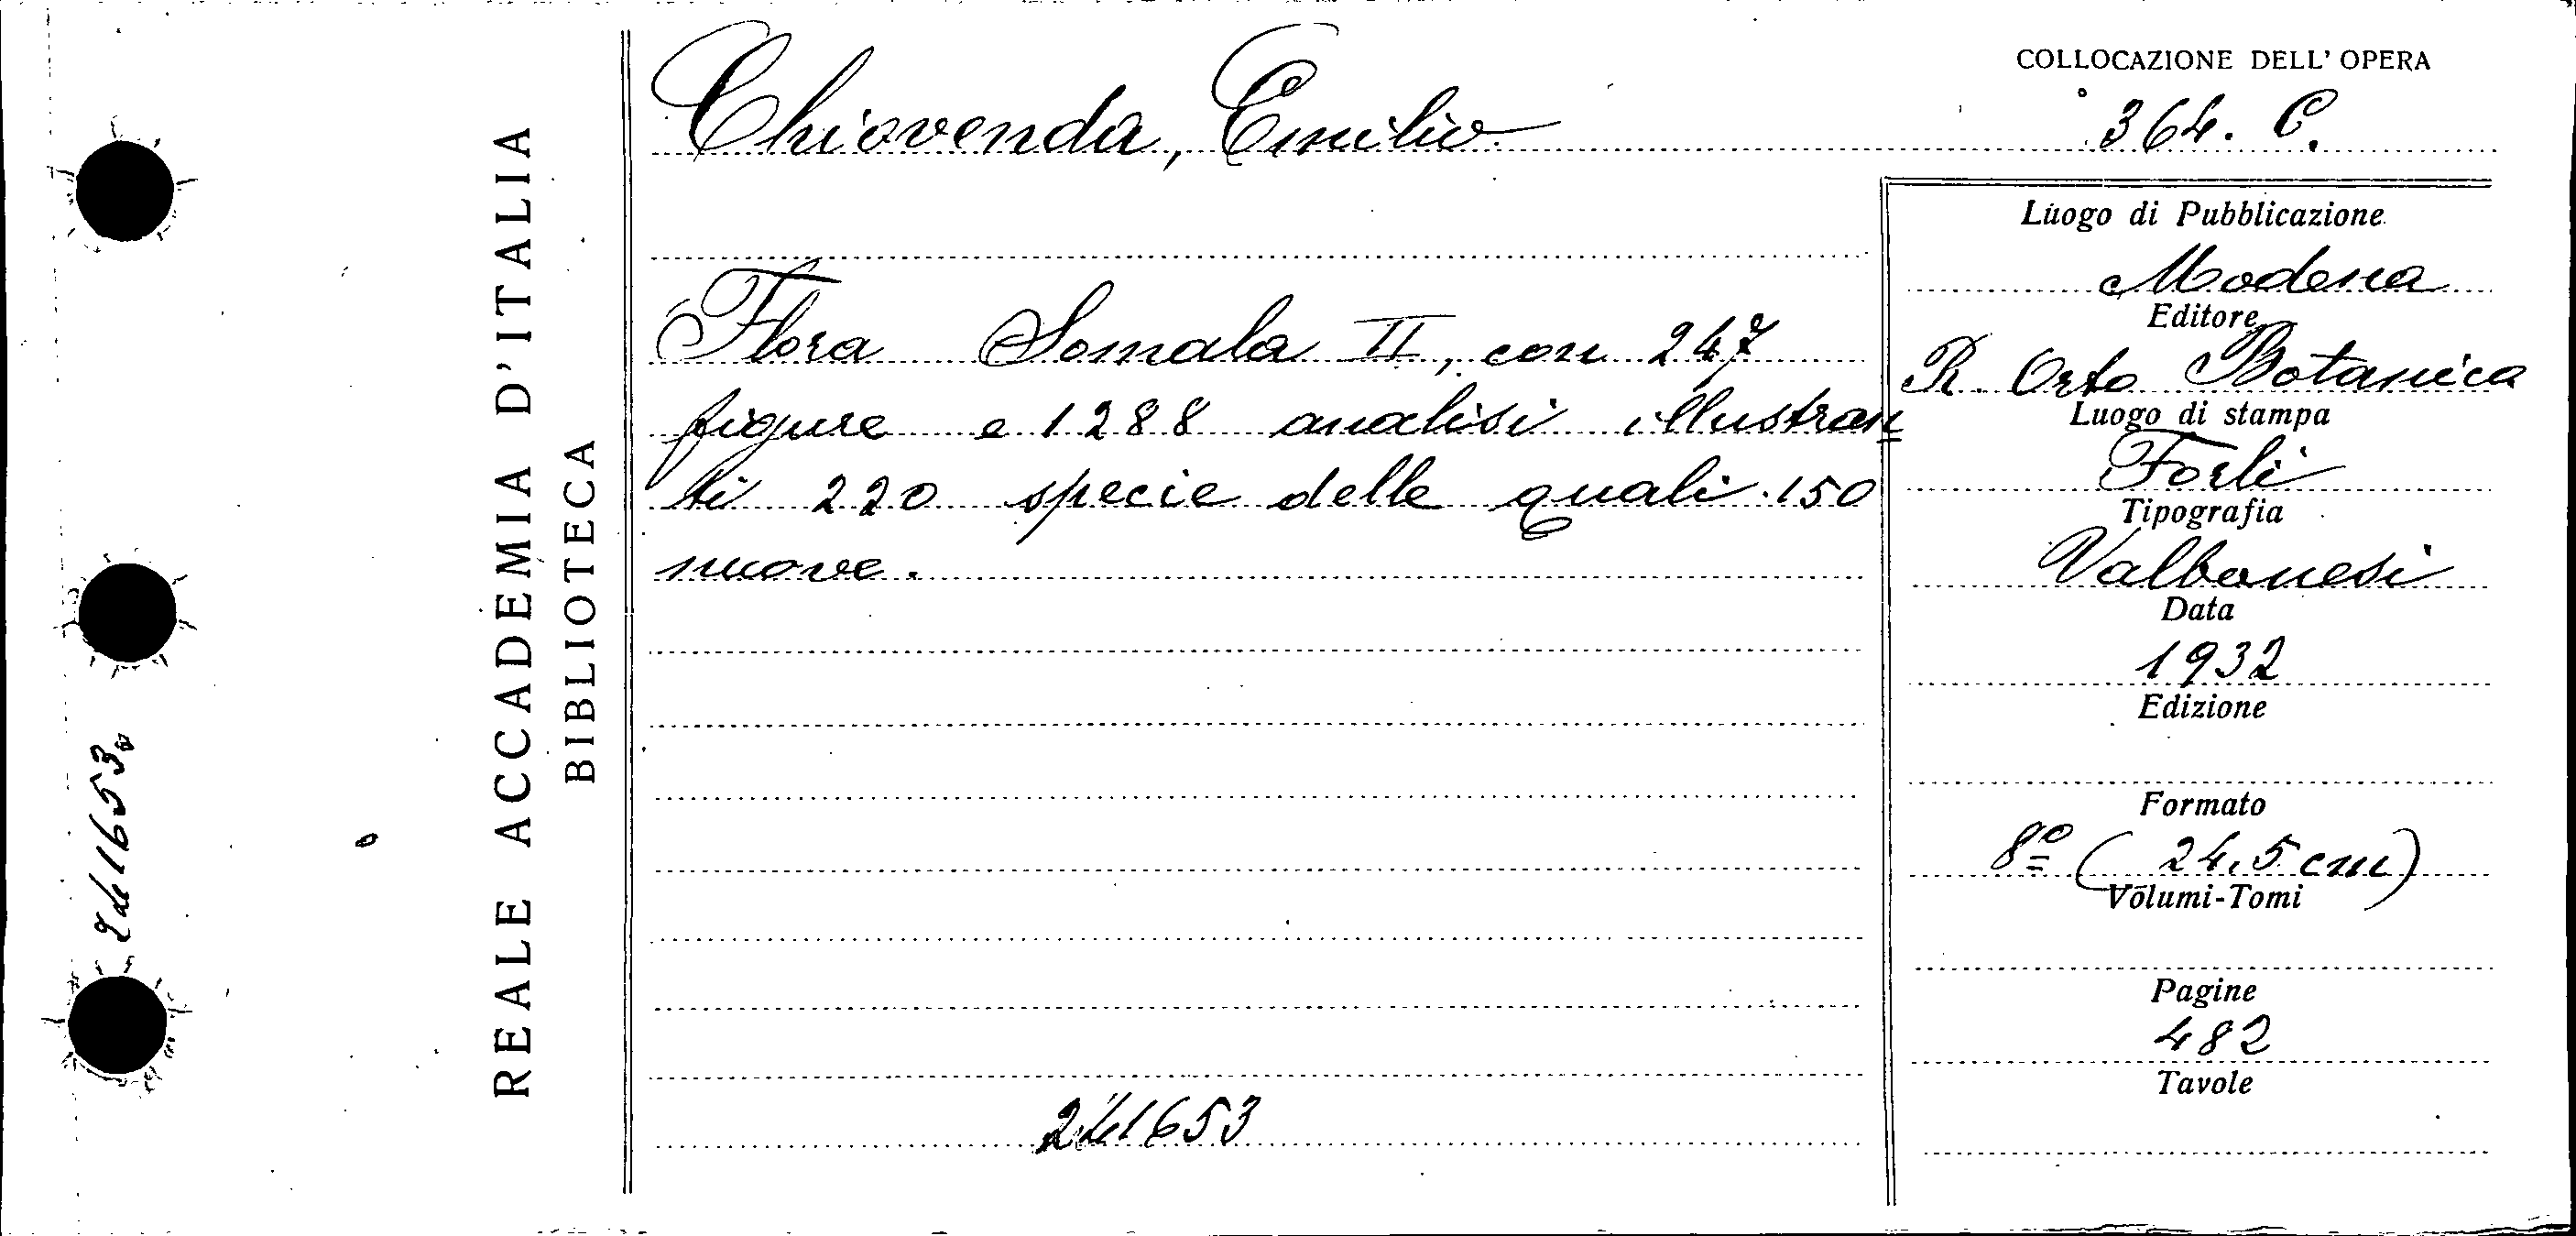 REALE ACCADEMIA D'ITALIA
BIBLIOTECA
Chiovenda, Emilio
COLLOCAZIONE DELL'OPERA
364. C.
Flora Somala II, con 247
figure e 1288 analisi illustran=
ti 220 specie delle quali 150
nuove.
241653
Luogo di Pubblicazione
Modena
Editore
R. Orto Botanica
Luogo di stampa
Forlì
Tipografia
Valbonesi
Data
1932
Edizione
Formato
8º (24,5 cm)
Volumi-Tomi
Pagine
482
Tavole